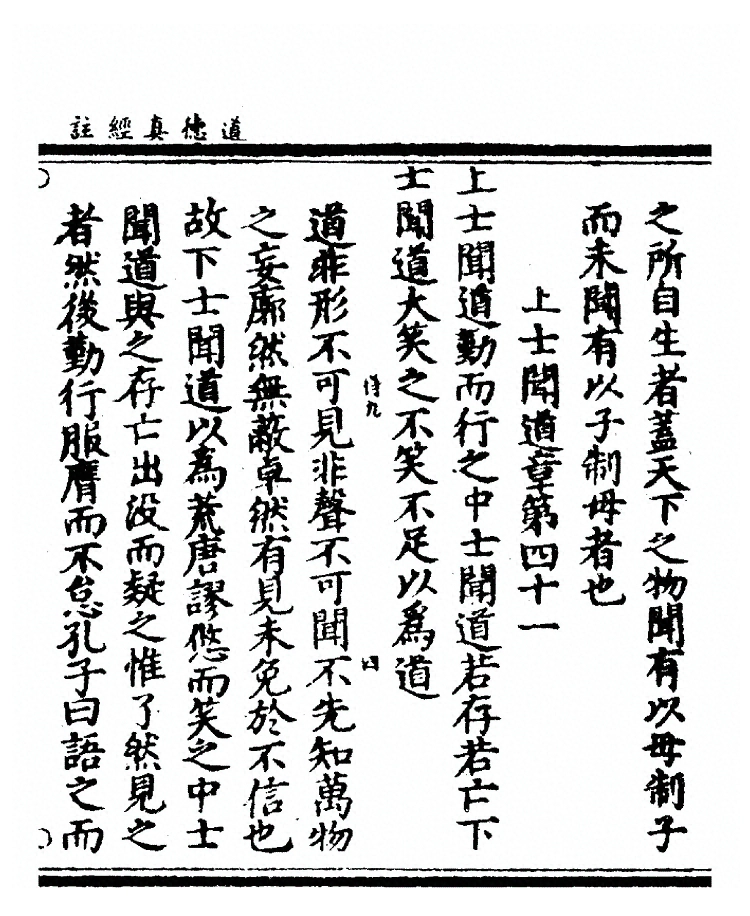 道德真經註
之所自生者蓋天下之物聞有以母制子
而未聞有以子制母者也
上士聞道章第四十一
上士聞道勤而行之中士聞道若存若亡下
士聞道大笑之不笑不足以爲道
道非形不可見非聲不可聞不先知萬物
之妄廓然無蔽卓然有見未免於不信也
故下士聞道以爲荒唐謬悠而笑之中士
聞道與之存亡出没而疑之惟了然見之
者然後勤行服膺而不怠孔子曰語之而